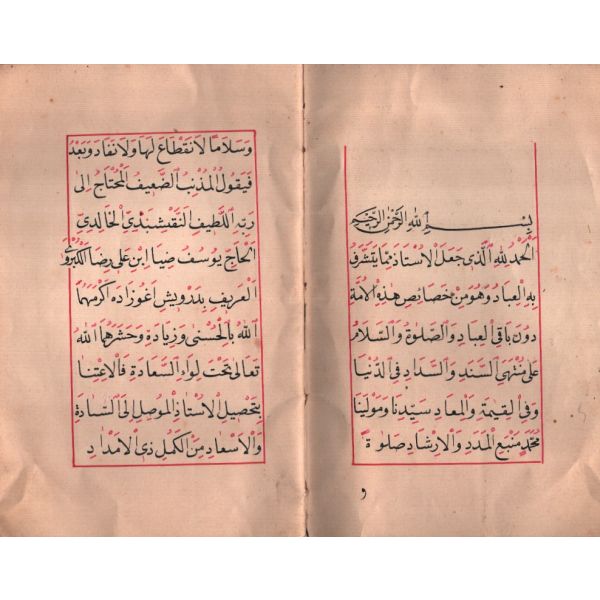 بسم الله الرحمن الرحيم
الحمد لله الذي جعل الاستاذ مما يتشرف
به العباد وهو من خصائص هذه الامة
دون باقي العباد والصلوة والسلام
على منتهى السند والسداد في الدنيا
وفي القيمة والمعاد سيدنا ومولينا
محمد منبع المدد والارشاد صلوة
و
وسلاما لا نقطاع لها ولا نفاد وبعد
فيقول المذنب الضعيف المحتاج الى
ربه اللطيف النقشبندي الخالدي
الحاج يوسف ضيا ابن على رضا
العريف بدرويش اغوزاده اكرمهما
الله بالحسنى وزيادة وحشرهما الله
تعالى تحت لواء السعادة فالاعتنا
بتحصيل الاستاذ الموصل الى السادة
والاسعاد من الكمل ذي الامداد